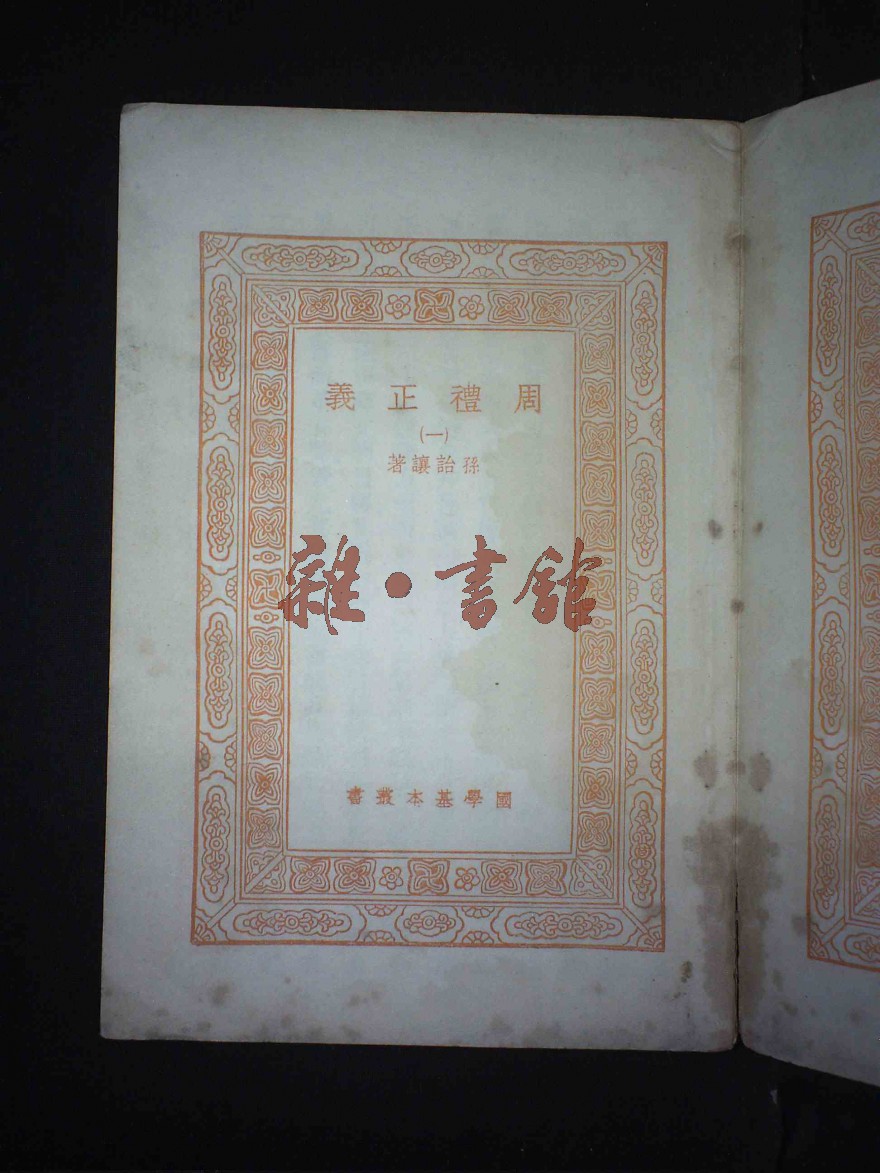 周禮正義
(一)
孫詒讓著
雜·書館
國學基本叢書